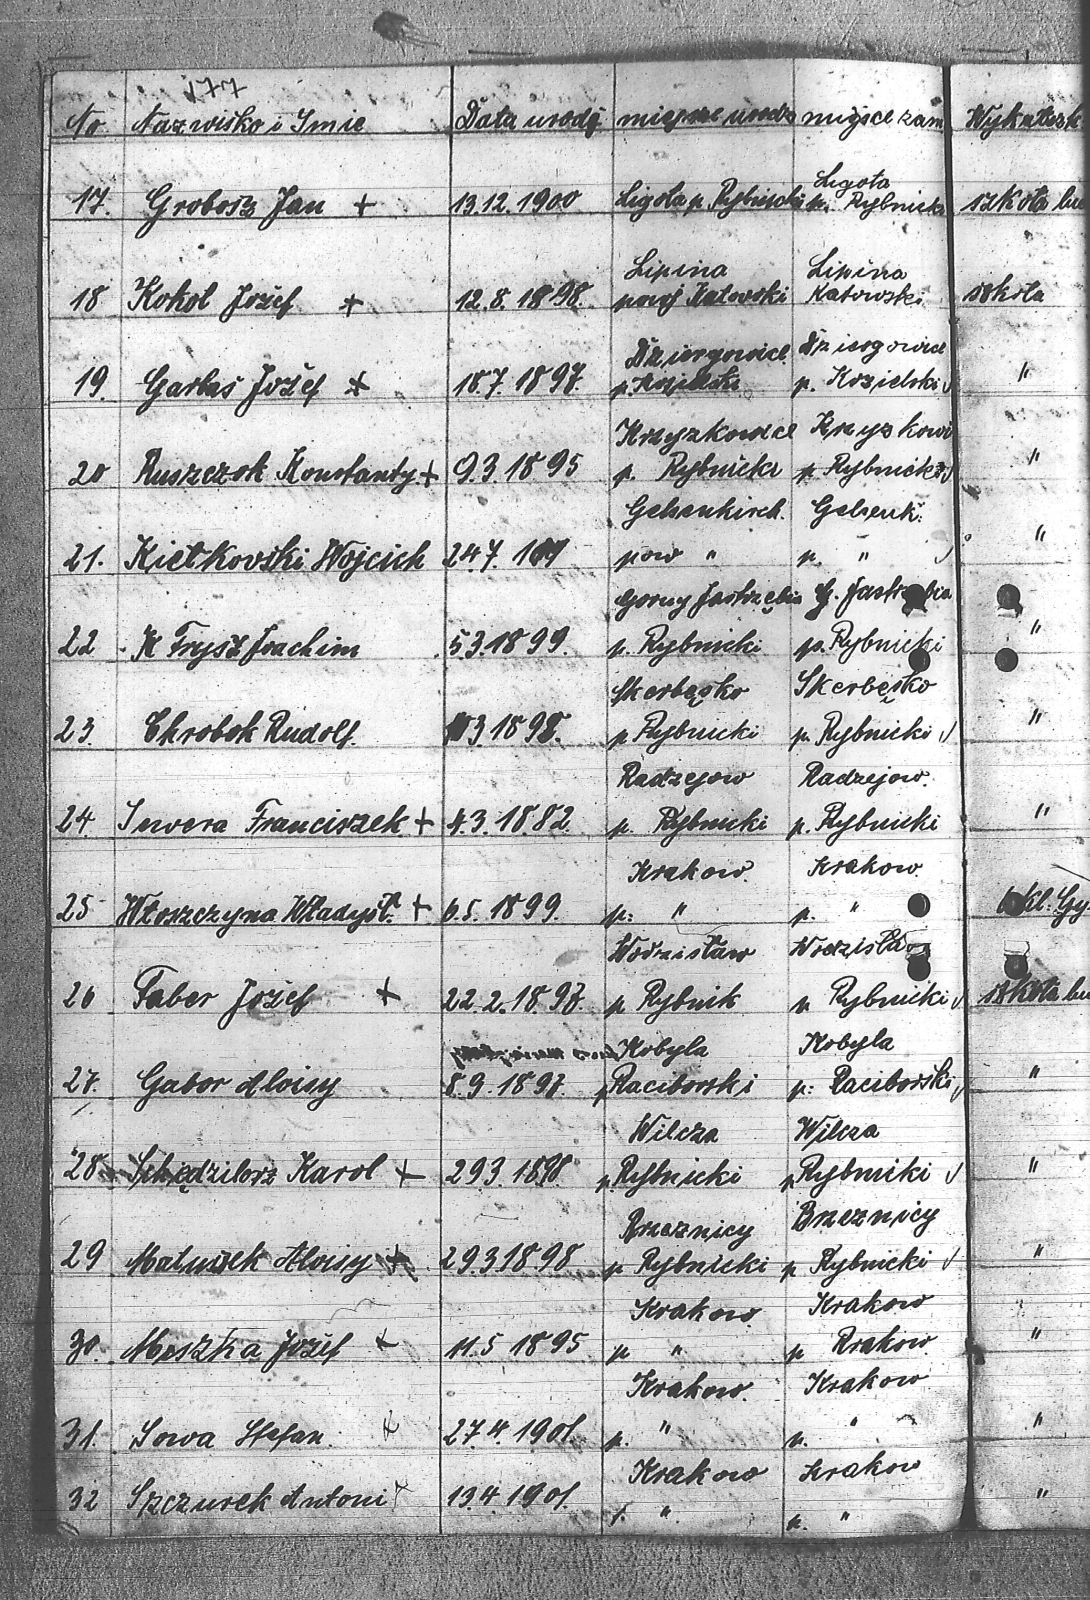 177
No Nazwisko i Imie Data urodz miejsce urodz miejsce zam
17. Grobosz Jan + 13.12.1900 Ligota p. Rybnicki Ligota p. Rybnicki szkoła
18 Kokol Jožef + 12.8.1898. Lipina powj Katowski Lipina Katowski szkoła
19. Garbas Jožef + 18.7.1897. Dziergowice p. Dziergowice p. Kozielski "
20 Ruszczok Konstanty + 9.3.1895 Krzyzkowice p. Rybnicki Krzyzkowi p. Rybnicki "
21. Kietkovski Wojcich 24.7. Gelsenkirch. pow " Gelsenk. p. " "
22 Joachim 5.3.1899. Gorny Jastrzębia p. Rybnicki G. Jastrzębia p. Rybnicki "
23. Chrobok Rudolf. 3.1898. Skerbęsko p. Rybnicki Skerbęsko p. Rybnicki "
24. Franciszek + 4.3.1882. Radzejow p. Rybnicki Radzejow. p. Rybnicki "
25 Włoszczyna Władysł. + 6.5.1899. Krakow. p. " Krakow. p. " kl. Gy.
26 Faber Jožef + 22.2.1897. Wodzisław p. Rybnik Wodzisław p. Rybnicki szkoła
27. Gabor Aloisy 8.9.1897. Kobyla p. Raciborski Kobyla p. Raciborski "
28 Karol + 29.3.1898 Wilcza p. Rybnicki Wilcza p. Rybnicki "
29 Aloisy + 29.3.1898 Brzeznicy p. Rybnicki Brzeznicy p. Rybnicki "
30. Jožef + 11.5.1895 Krakow. p. " Krakow p. Krakow "
31. Sowa Stefan. + 27.4.1901. Krakow. p. " Krakow p. " "
32 Szczurek Antoni + 13.4.1901. Krakow " Krakow p. " "